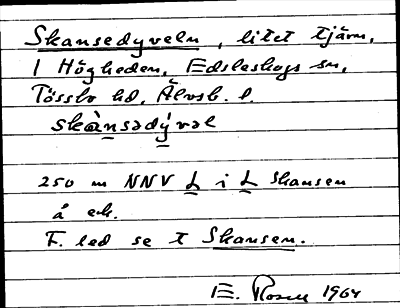 Skansedyveln, litet tjärn,
I Högheden, Edsleskogs sn,
Tössbo hd, Älvsb. l.
skànsədývəl
250 m NNV L i L Skansen
å ek.
F. led se t Skansen.
E. Rosen 1964